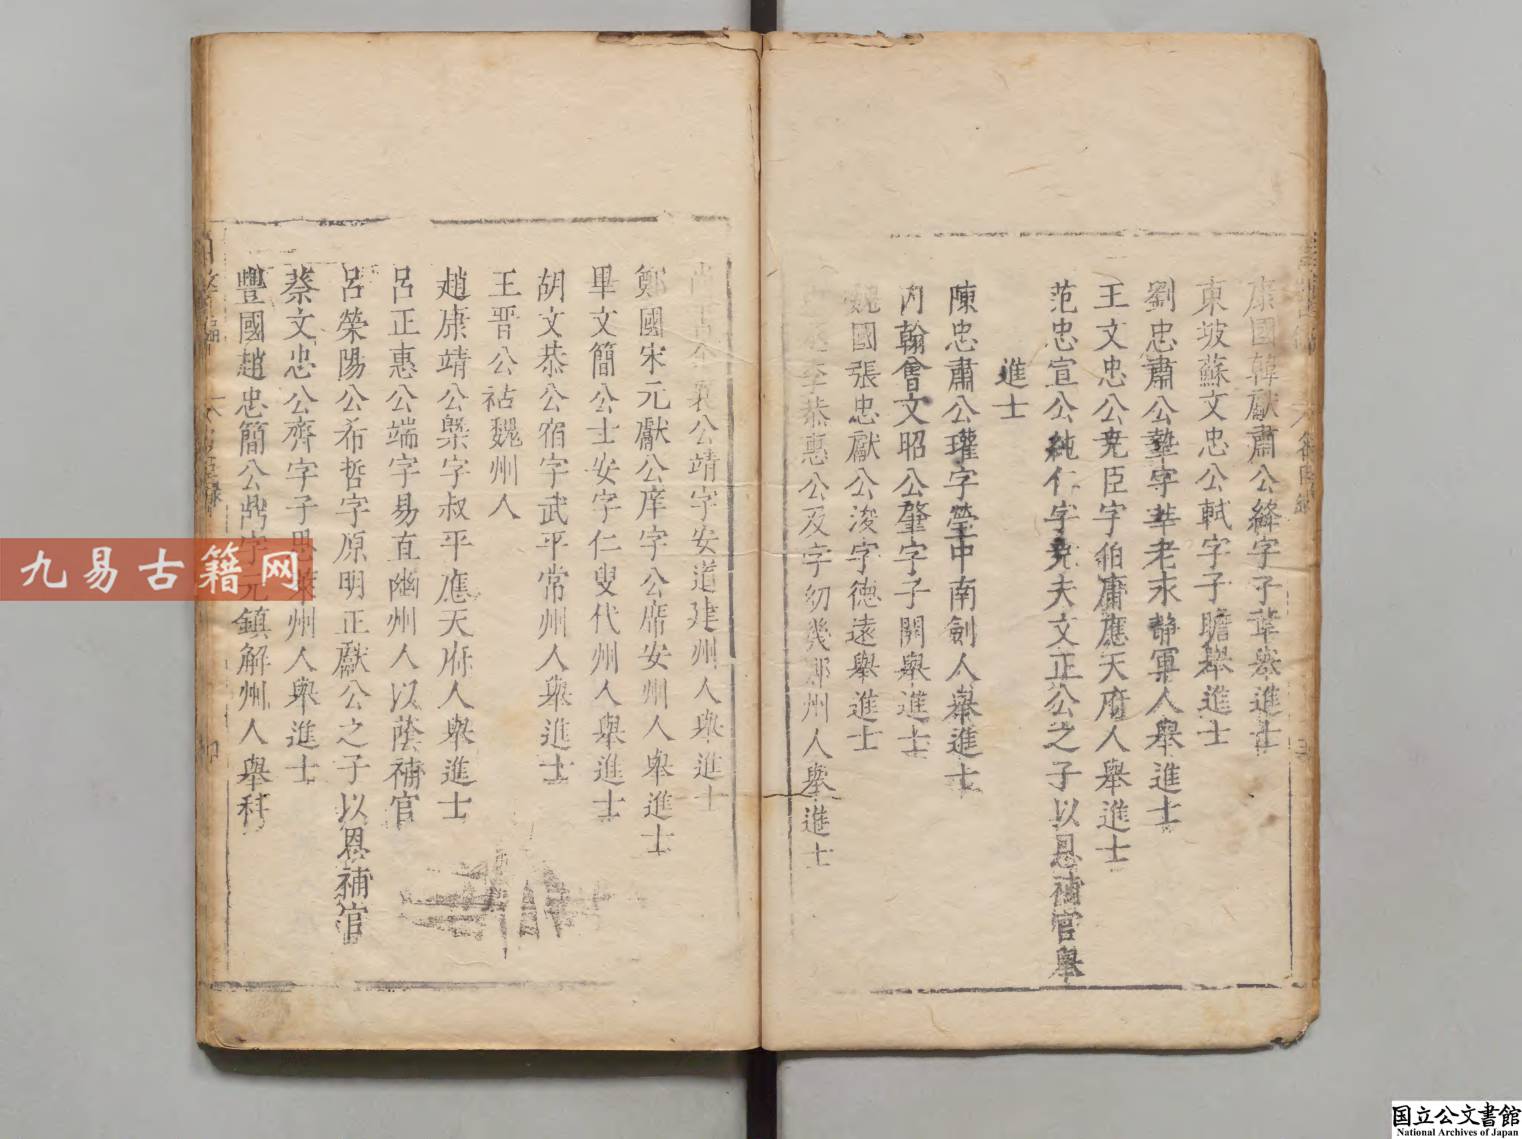 康國韓獻肅公絳字子華舉進士
東坡蘇文忠公軾字子瞻舉進士
劉忠肅公摯字莘老永静軍人舉進士
王文忠公堯臣字伯庸應天府人舉進士
范忠宣公純仁字堯夫文正公之子以恩補官舉
進士
陳忠肅公瓘字瑩中南劍人舉進士
內翰曾文昭公肇字子開舉進士
魏國張忠獻公浚字德遠舉進士
李恭惠公及字幼幾鄭州人舉進士
襄公靖字安道建州人舉進士
鄭國宋元獻公庠字公序安州人舉進士
畢文簡公士安字仁叟代州人舉進士
胡文恭公宿字武平常州人舉進士
王晋公祜魏州人
趙康靖公槩字叔平應天府人舉進士
呂正惠公端字易直幽州人以蔭補官
呂榮陽公希哲字原明正獻公之子以恩補官
蔡文忠公齊字子思萊州人舉進士
豐國趙忠簡公鼎字元鎮解州人舉科
九易古籍网
国立公文書館
National Archives of Japan